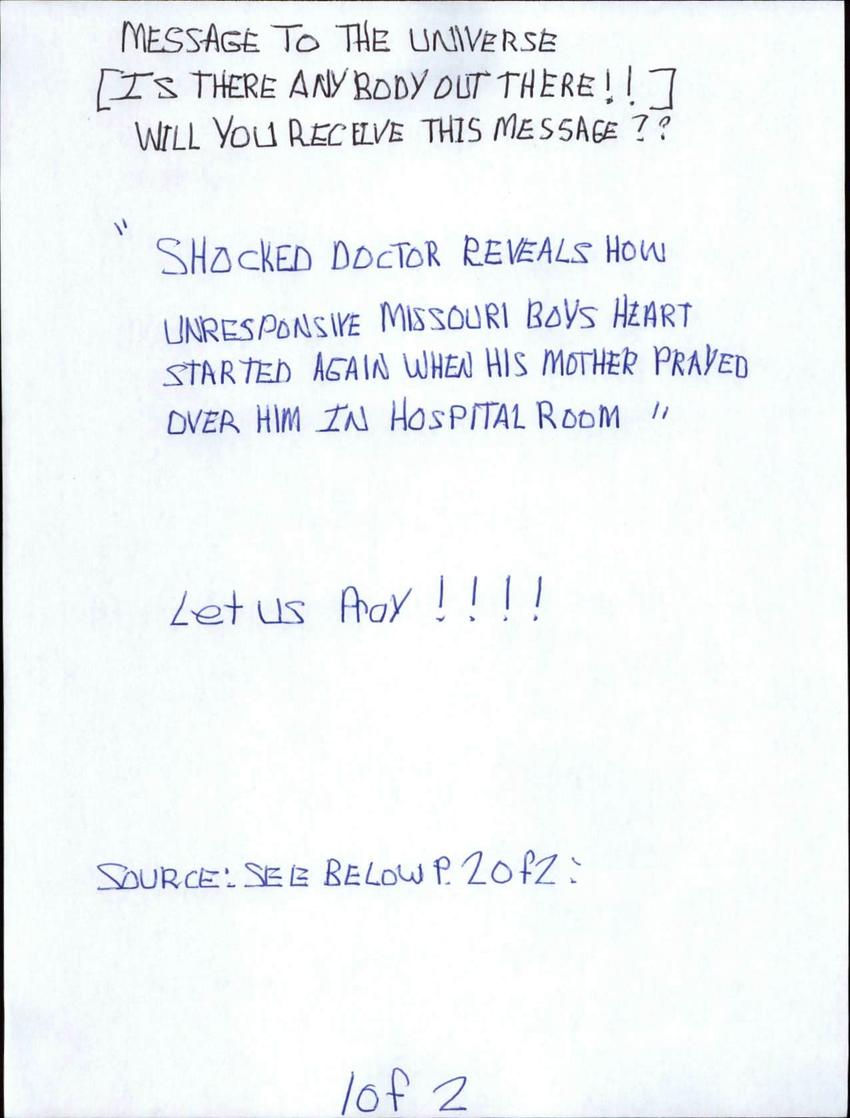 MESSAGE TO THE UNIVERSE
[IS THERE ANYBODY OUT THERE!!]
WILL YOU RECEIVE THIS MESSAGE??
"SHOCKED DOCTOR REVEALS HOW
UNRESPONSIVE MISSOURI BOYS HEART
STARTED AGAIN WHEN HIS MOTHER PRAYED
OVER HIM IN HOSPITAL ROOM"
Let us Pray!!!!
SOURCE: SEE BELOW P. 2 of 2:
1 of 2